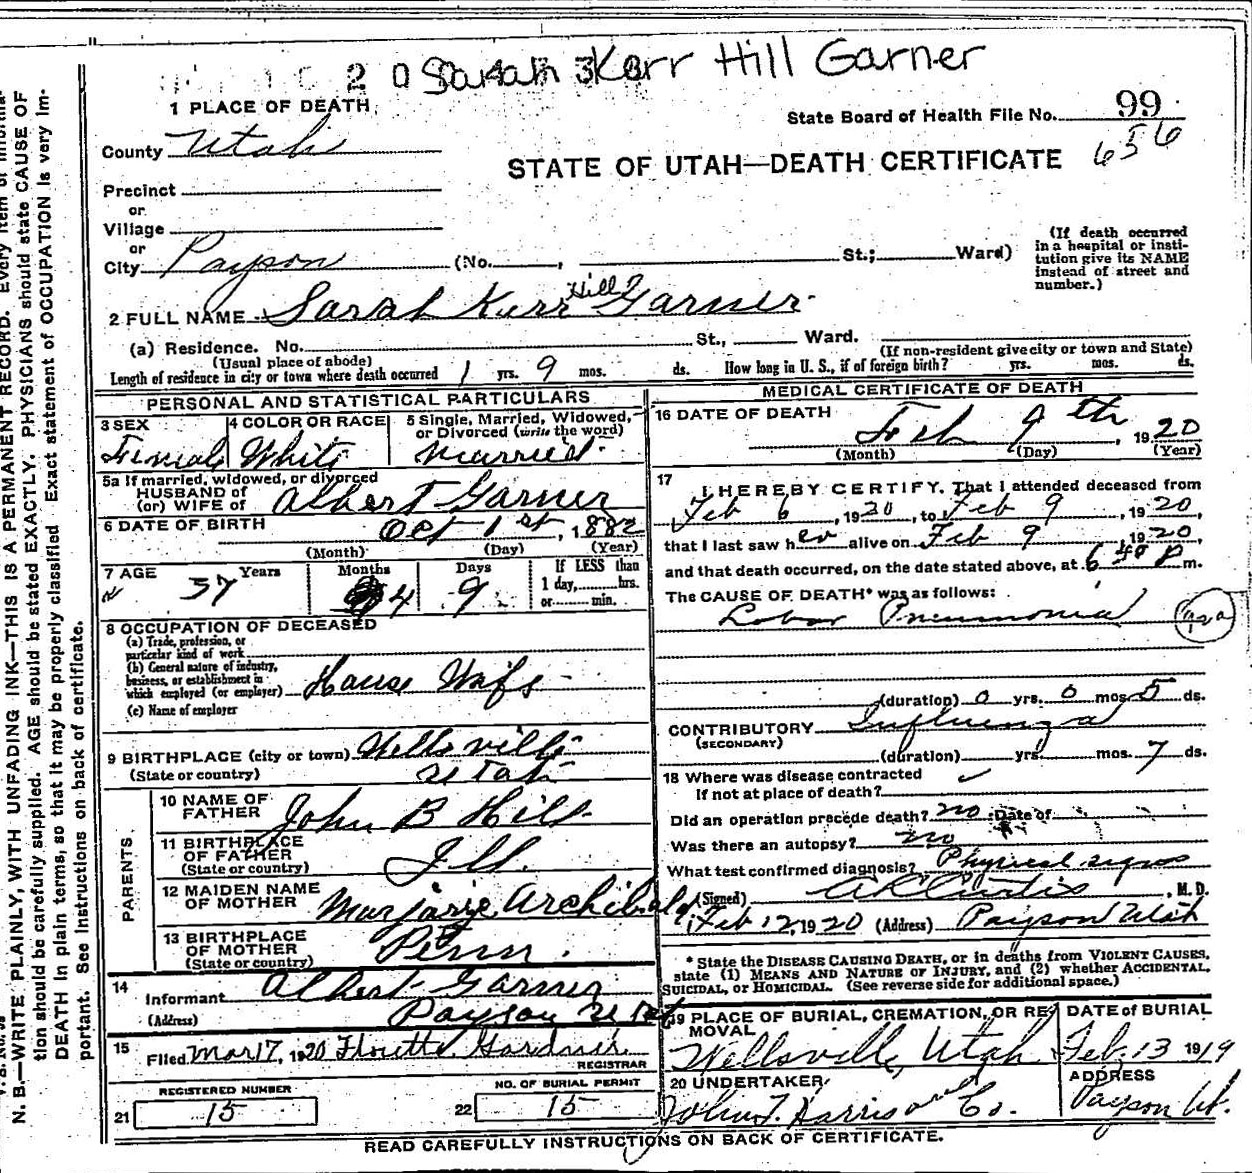 2 0 Sarah Kerr Hill Garner
1 PLACE OF DEATH
State Board of Health File No. 99
656
County Utah
STATE OF UTAH—DEATH CERTIFICATE
Precinct
or
Village
or
City Payson (No. , St.; Ward)
(If death occurred in a hospital or insti-
tution give its NAME
instead of street and
number.)
2 FULL NAME Sarah Kerr Hill Garner
(a) Residence. No. St., Ward.
(Usual place of abode)
(If non-resident give city or town and State)
Length of residence in city or town where death occurred 1 yrs. 9 mos. ds. How long in U. S., if of foreign birth? yrs. mos. ds.
PERSONAL AND STATISTICAL PARTICULARS
3 SEX Female
4 COLOR OR RACE White
5 Single, Married, Widowed,
or Divorced (write the word)
Married
5a If married, widowed, or divorced
HUSBAND of
(or) WIFE of Albert Garner
6 DATE OF BIRTH Oct 1st, 1882
(Month) (Day) (Year)
7 AGE 37 Years Months 4 Days 9
If LESS than
1 day, hrs.
or min.
8 OCCUPATION OF DECEASED
(a) Trade, profession, or
particular kind of work
(b) General nature of industry,
business, or establishment in
which employed (or employer) House Wife
(c) Name of employer
9 BIRTHPLACE (city or town) Wellsville
(State or country) Utah
PARENTS
10 NAME OF
FATHER John B Hill
11 BIRTHPLACE
OF FATHER
(State or country) Ill.
12 MAIDEN NAME
OF MOTHER Marjorie Archibald
13 BIRTHPLACE
OF MOTHER
(State or country) Penn.
14
Informant Albert Garner
(Address) Payson Utah
15
Filed Mar 17, 1920 Florette Gardner
REGISTRAR
REGISTERED NUMBER
21 15
NO. OF BURIAL PERMIT
22 15
MEDICAL CERTIFICATE OF DEATH
16 DATE OF DEATH Feb 9th, 1920
(Month) (Day) (Year)
17
I HEREBY CERTIFY, That I attended deceased from
Feb 6, 1920, to Feb 9, 1920,
that I last saw her alive on Feb 9, 1920,
and that death occurred, on the date stated above, at 6 40 P m.
The CAUSE OF DEATH* was as follows:
Lobar Pneumonia
(duration) 0 yrs. 0 mos. 5 ds.
CONTRIBUTORY Influenza
(SECONDARY)
(duration) yrs. mos. 7 ds.
18 Where was disease contracted
If not at place of death?
Did an operation precede death? no Date of
Was there an autopsy? no
What test confirmed diagnosis? Physical signs
(Signed) A C Curtis, M. D.
Feb 12, 1920 (Address) Payson Utah
* State the DISEASE CAUSING DEATH, or in deaths from VIOLENT CAUSES,
state (1) MEANS AND NATURE OF INJURY, and (2) whether ACCIDENTAL,
SUICIDAL, or HOMICIDAL. (See reverse side for additional space.)
19 PLACE OF BURIAL, CREMATION, OR RE-
MOVAL
Wellsville, Utah
DATE of BURIAL
Feb, 13 1919
20 UNDERTAKER
John T. Harrison and Co.
ADDRESS
Payson Ut.
READ CAREFULLY INSTRUCTIONS ON BACK OF CERTIFICATE.
N. B.—WRITE PLAINLY, WITH UNFADING INK—THIS IS A PERMANENT RECORD. Every item of informa-
tion should be carefully supplied. AGE should be stated EXACTLY. PHYSICIANS should state CAUSE OF
DEATH in plain terms, so that it may be properly classified. Exact statement of OCCUPATION is very im-
portant. See instructions on back of certificate.